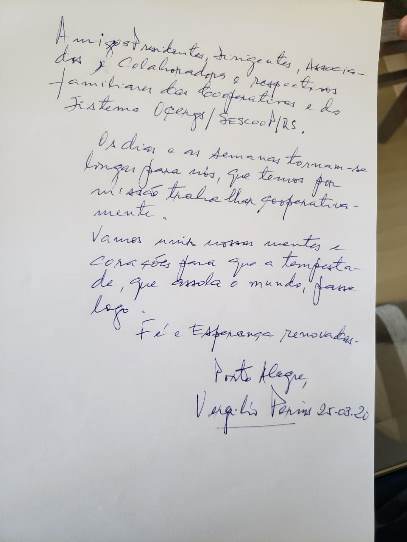 Amigos Presidentes, Dirigentes, Associa-
dos, Colaboradores e respectivos
familiares das Cooperativas e do
Sistema Ocergs/SESCOOP/RS.
Os dias e as semanas tornam-se
longas para nós, que temos por
missão trabalhar cooperativa-
mente.
Vamos unir nossas mentes e
corações para que a tempesta-
de, que assola o mundo, passe
logo.
Fé e Esperança renovadas.
Porto Alegre,
Vergilio Perius 25-03-20